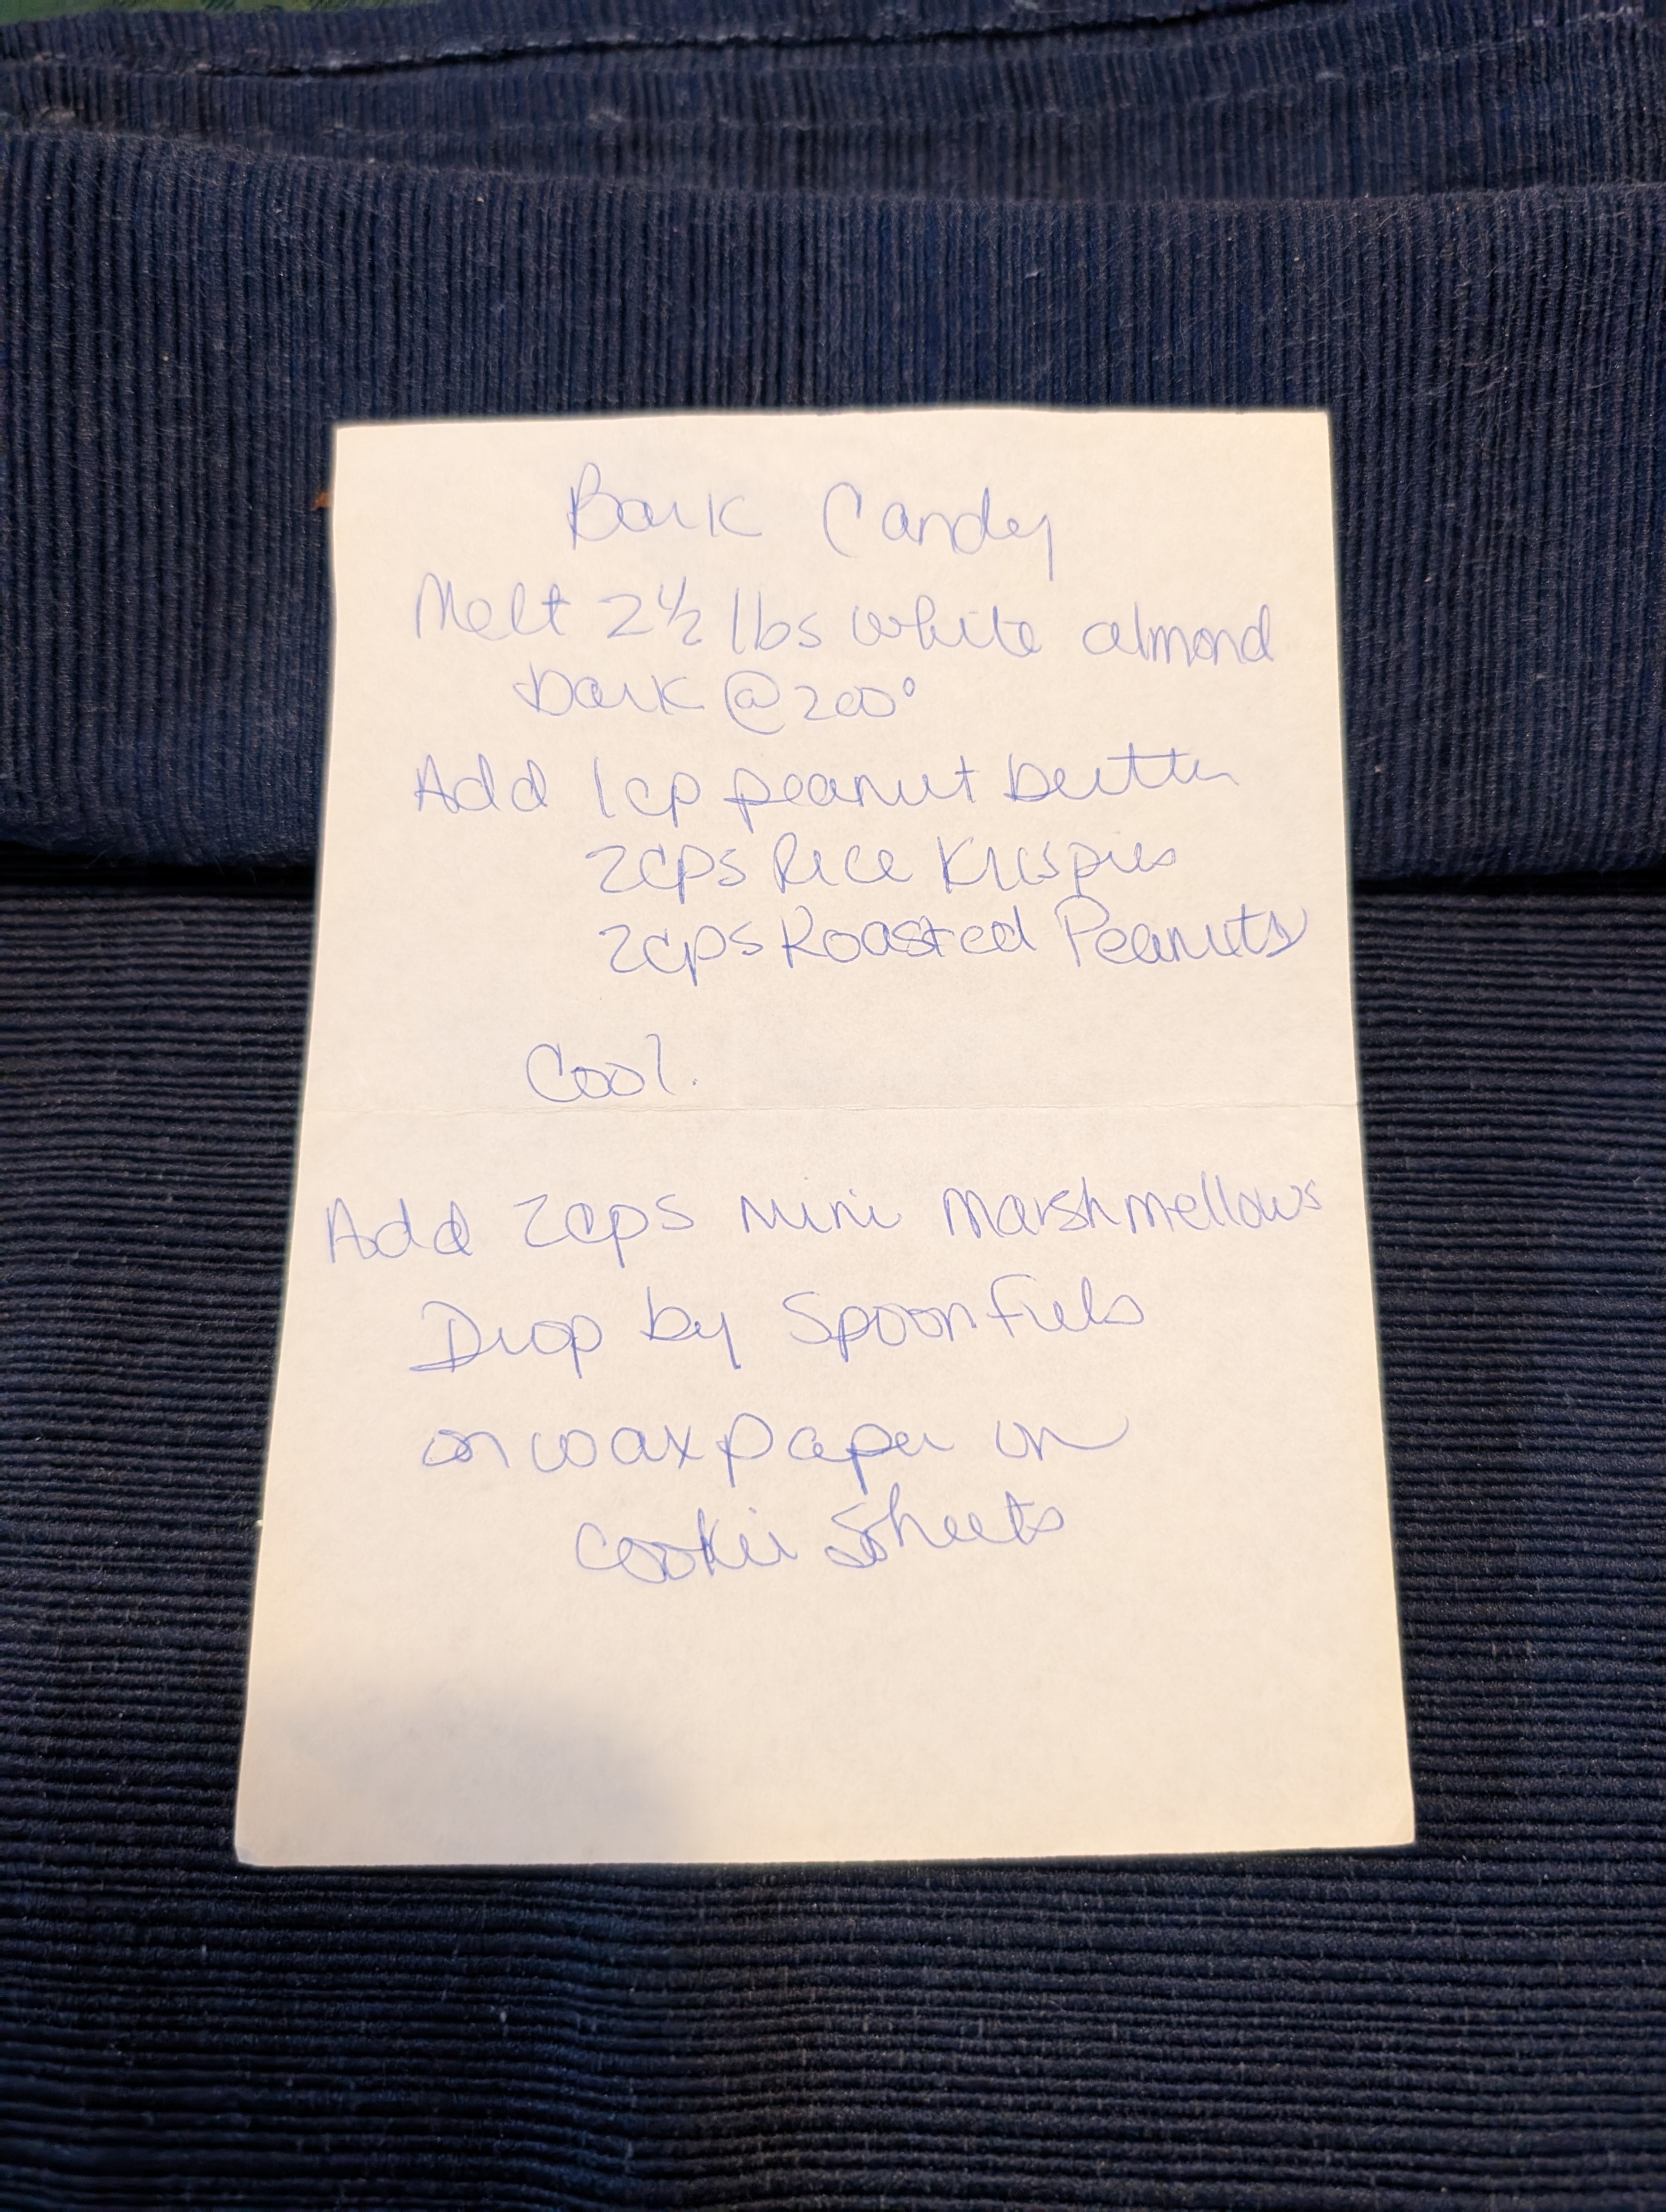 Bark Candy
Melt 2 1/2 lbs white almond
bark @ 200°
Add 1 cp peanut butter
2 cps Rice Krispies
2 cps Roasted Peanuts
Cool.
Add 2 cps Mini Marshmellows
Drop by Spoonfuls
on wax paper on
cookie sheets